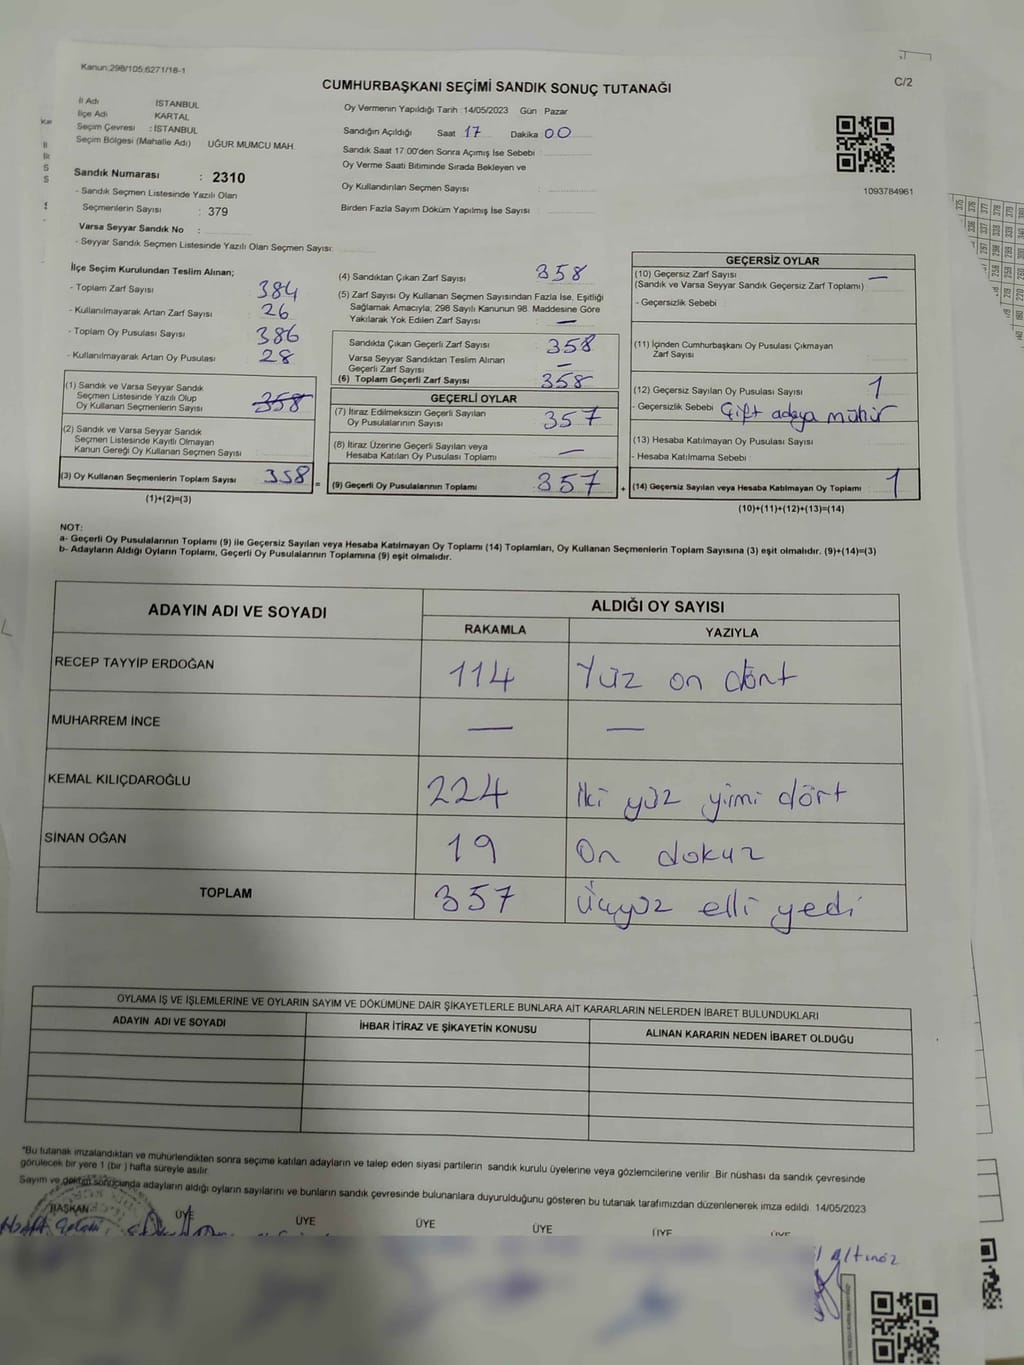 Kanun:298/105;6271/18-1
CUMHURBAŞKANI SEÇİMİ SANDIK SONUÇ TUTANAĞI
C/2
İl Adı İSTANBUL
İlçe Adı KARTAL
Seçim Çevresi : İSTANBUL
Seçim Bölgesi (Mahalle Adı) UĞUR MUMCU MAH.
Sandık Numarası : 2310
- Sandık Seçmen Listesinde Yazılı Olan
Seçmenlerin Sayısı : 379
Varsa Seyyar Sandık No :
- Seyyar Sandık Seçmen Listesinde Yazılı Olan Seçmen Sayısı:
Oy Vermenin Yapıldığı Tarih :14/05/2023 Gün : Pazar
Sandığın Açıldığı Saat 17 Dakika 00
Sandık Saat 17:00'den Sonra Açımış İse Sebebi :
Oy Verme Saati Bitiminde Sırada Bekleyen ve
Oy Kullandırılan Seçmen Sayısı :
Birden Fazla Sayım Döküm Yapılmış İse Sayısı :
1093784961
İlçe Seçim Kurulundan Teslim Alınan;
- Toplam Zarf Sayısı 384
- Kullanılmayarak Artan Zarf Sayısı 26
- Toplam Oy Pusulası Sayısı 386
- Kullanılmayarak Artan Oy Pusulası 28
(1) Sandık ve Varsa Seyyar Sandık
Seçmen Listesinde Yazılı Olup
Oy Kullanan Seçmenlerin Sayısı 358
(2) Sandık ve Varsa Seyyar Sandık
Seçmen Listesinde Kayıtlı Olmayan
Kanun Gereği Oy Kullanan Seçmen Sayısı
(3) Oy Kullanan Seçmenlerin Toplam Sayısı 358 =
(1)+(2)=(3)
(4) Sandıktan Çıkan Zarf Sayısı 358
(5) Zarf Sayısı Oy Kullanan Seçmen Sayısından Fazla İse, Eşitliği
Sağlamak Amacıyla; 298 Sayılı Kanunun 98. Maddesine Göre
Yakılarak Yok Edilen Zarf Sayısı : —
Sandıkta Çıkan Geçerli Zarf Sayısı 358
Varsa Seyyar Sandıktan Teslim Alınan
Geçerli Zarf Sayısı —
(6) Toplam Geçerli Zarf Sayısı 358
GEÇERLİ OYLAR
(7) İtiraz Edilmeksizin Geçerli Sayılan
Oy Pusulalarının Sayısı 357
(8) İtiraz Üzerine Geçerli Sayılan veya
Hesaba Katılan Oy Pusulası Toplamı —
(9) Geçerli Oy Pusulalarının Toplamı 357 +
GEÇERSİZ OYLAR
(10) Geçersiz Zarf Sayısı —
(Sandık ve Varsa Seyyar Sandık Geçersiz Zarf Toplamı)
- Geçersizlik Sebebi :
(11) İçinden Cumhurbaşkanı Oy Pusulası Çıkmayan
Zarf Sayısı
(12) Geçersiz Sayılan Oy Pusulası Sayısı 1
- Geçersizlik Sebebi Çift adaya mühür
(13) Hesaba Katılmayan Oy Pusulası Sayısı
- Hesaba Katılmama Sebebi
(14) Geçersiz Sayılan veya Hesaba Katılmayan Oy Toplamı 1
(10)+(11)+(12)+(13)=(14)
NOT:
a- Geçerli Oy Pusulalarının Toplamı (9) ile Geçersiz Sayılan veya Hesaba Katılmayan Oy Toplamı (14) Toplamları, Oy Kullanan Seçmenlerin Toplam Sayısına (3) eşit olmalıdır. (9)+(14)=(3)
b- Adayların Aldığı Oyların Toplamı, Geçerli Oy Pusulalarının Toplamına (9) eşit olmalıdır.
ADAYIN ADI VE SOYADI ALDIĞI OY SAYISI
RAKAMLA YAZIYLA
RECEP TAYYİP ERDOĞAN 114 Yüz on dört
MUHARREM İNCE — —
KEMAL KILIÇDAROĞLU 224 İki yüz yirmi dört
SİNAN OĞAN 19 On dokuz
TOPLAM 357 Üçyüz elli yedi
OYLAMA İŞ VE İŞLEMLERİNE VE OYLARIN SAYIM VE DÖKÜMÜNE DAİR ŞİKAYETLERLE BUNLARA AİT KARARLARIN NELERDEN İBARET BULUNDUKLARI
ADAYIN ADI VE SOYADI İHBAR İTİRAZ VE ŞİKAYETİN KONUSU ALINAN KARARIN NEDEN İBARET OLDUĞU
*Bu tutanak imzalandıktan ve mühürlendikten sonra seçime katılan adayların ve talep eden siyasi partilerin sandık kurulu üyelerine veya gözlemcilerine verilir. Bir nüshası da sandık çevresinde
görülecek bir yere 1 (bir) hafta süreyle asılır.
Sayım ve döküm sonucunda adayların aldığı oyların sayılarını ve bunların sandık çevresinde bulunanlara duyurulduğunu gösteren bu tutanak tarafımızdan düzenlenerek imza edildi. 14/05/2023
BAŞKAN ÜYE ÜYE ÜYE ÜYE ÜYE ÜYE